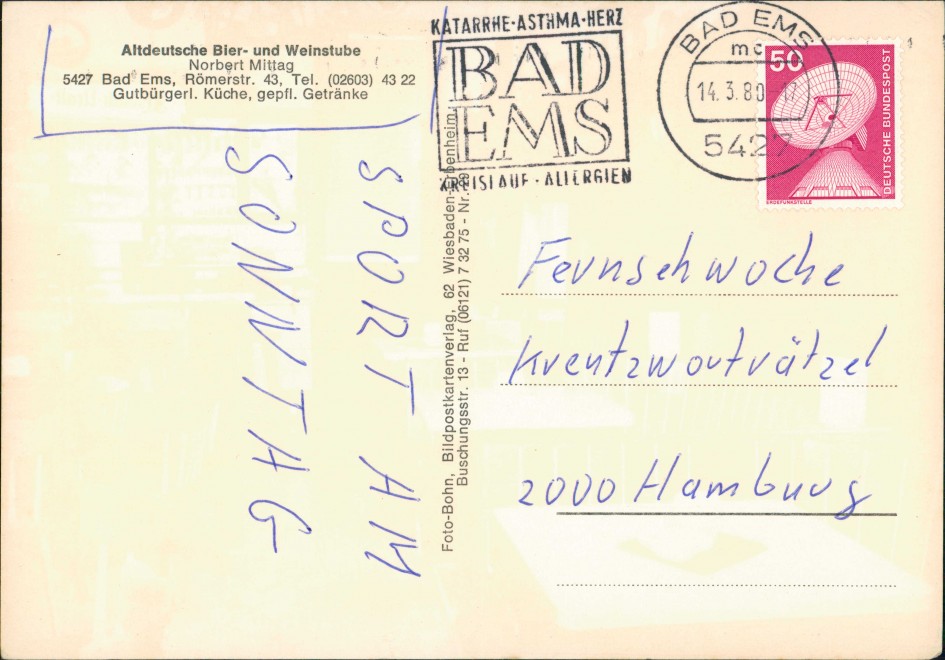 Altdeutsche Bier- und Weinstube
Norbert Mittag
5427 Bad Ems, Römerstr. 43, Tel. (02603) 43 22
Gutbürgerl. Küche, gepfl. Getränke
SPORT AM
SONNTAG
Foto-Bohn, Bildpostkartenverlag, 62 Wiesbaden-Erbenheim
Buschungsstr. 13 - Ruf (06121) 7 32 75 - Nr.
KATARRHE·ASTHMA·HERZ
BAD
EMS
KREISLAUF·ALLERGIEN
BAD EMS
mc
14.3.80-17
5427
50
DEUTSCHE BUNDESPOST
ERDEFUNKSTELLE
Fernsehwoche
Kreutzworträtzel
2000 Hamburg